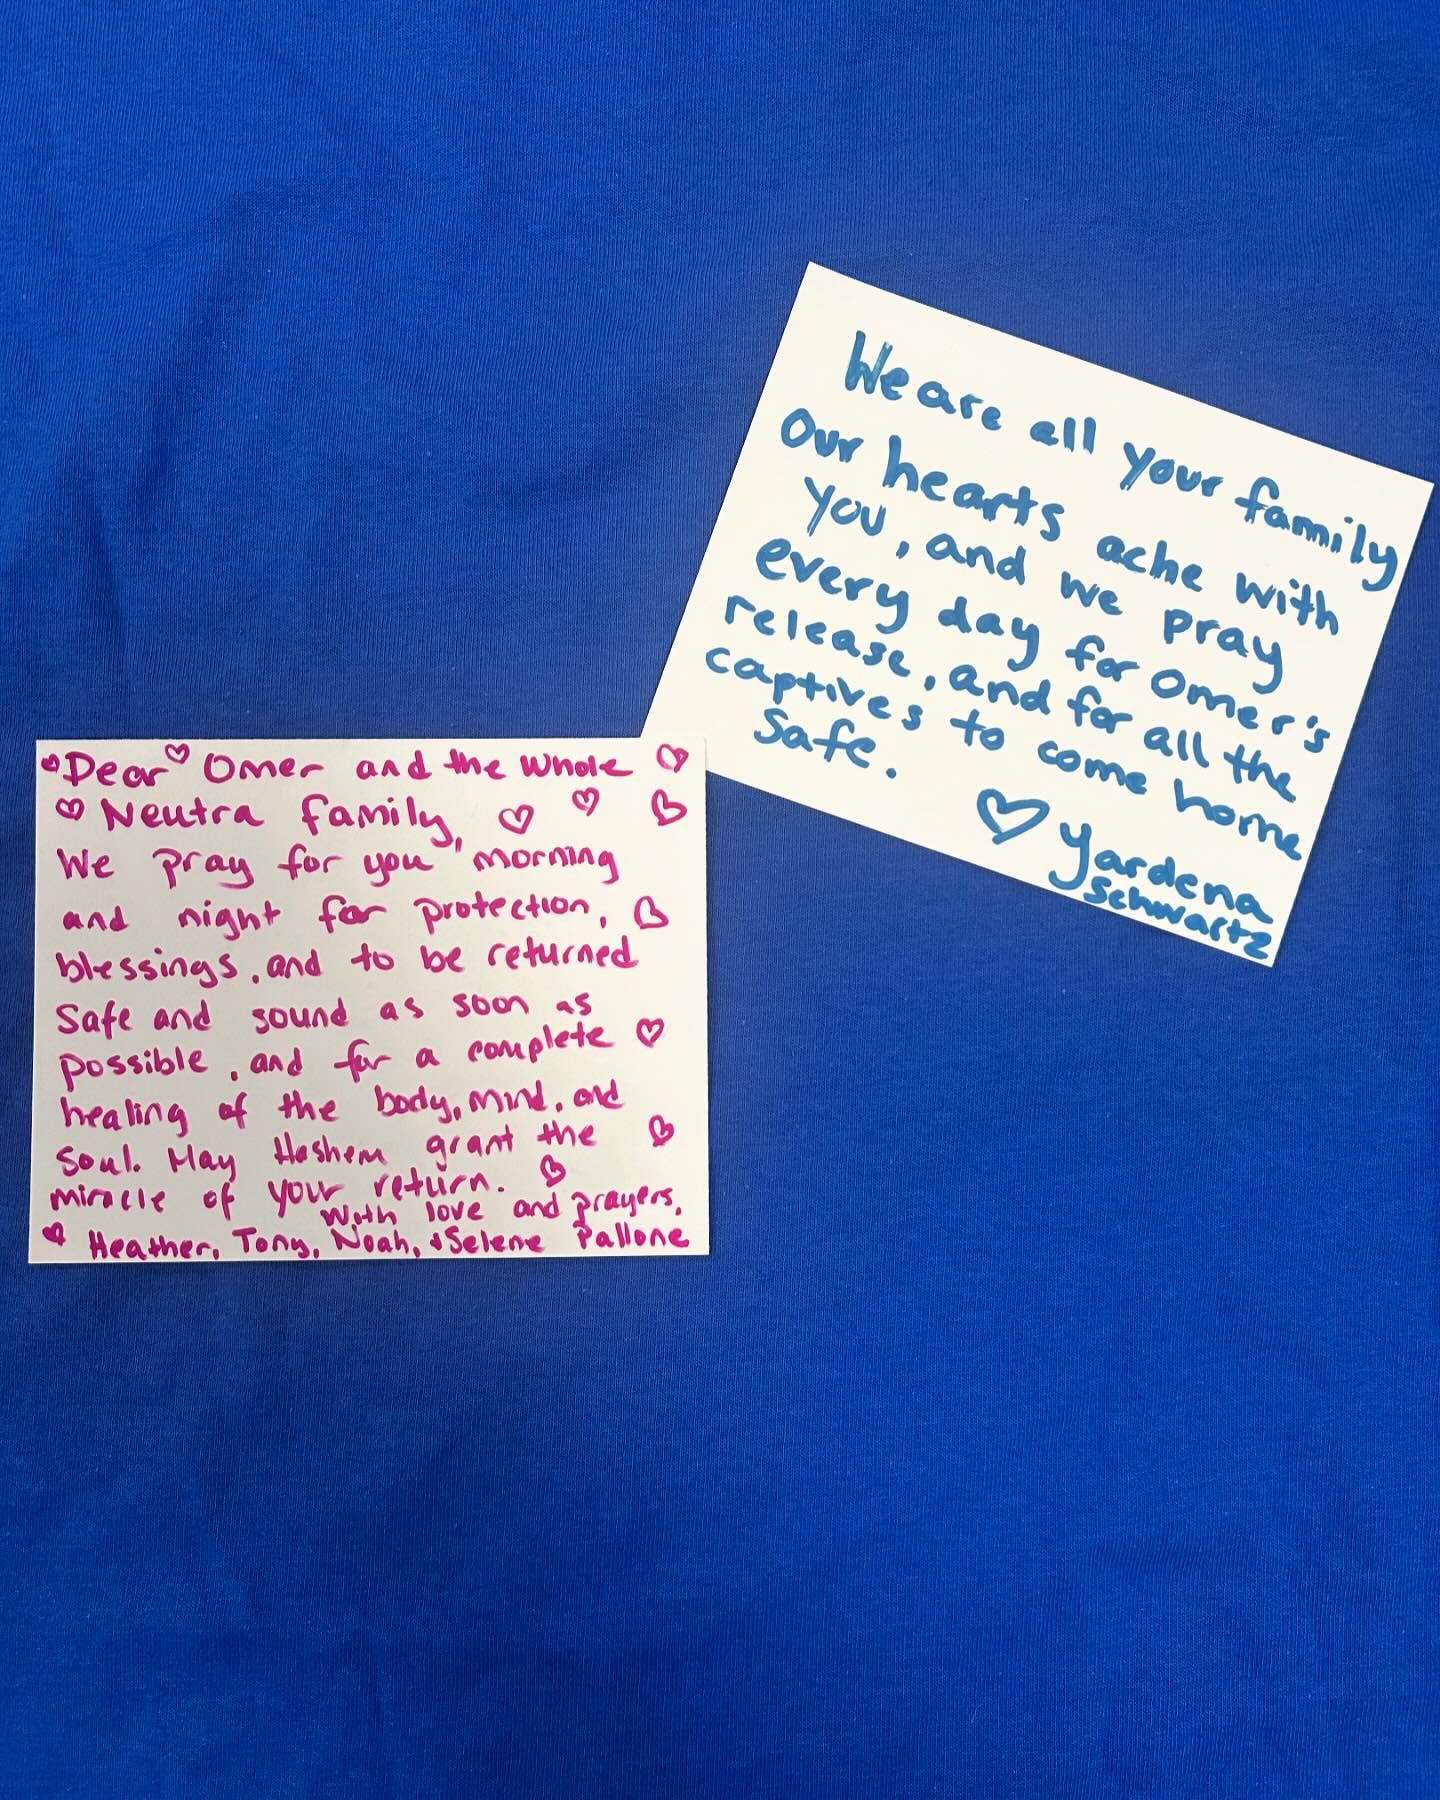 We are all your family
Our hearts ache with
you, and we pray
every day for Omer's
release, and for all the
captives to come home
safe.
♡ Yardena
Schwartz
Dear Omer and the whole
Neutra family,
We pray for you morning
and night for protection,
blessings, and to be returned
safe and sound as soon as
possible, and for a complete
healing of the body, mind, and
soul. May Hashem grant the
miracle of your return.
With love and prayers,
Heather, Tony, Noah, + Selene Pallone